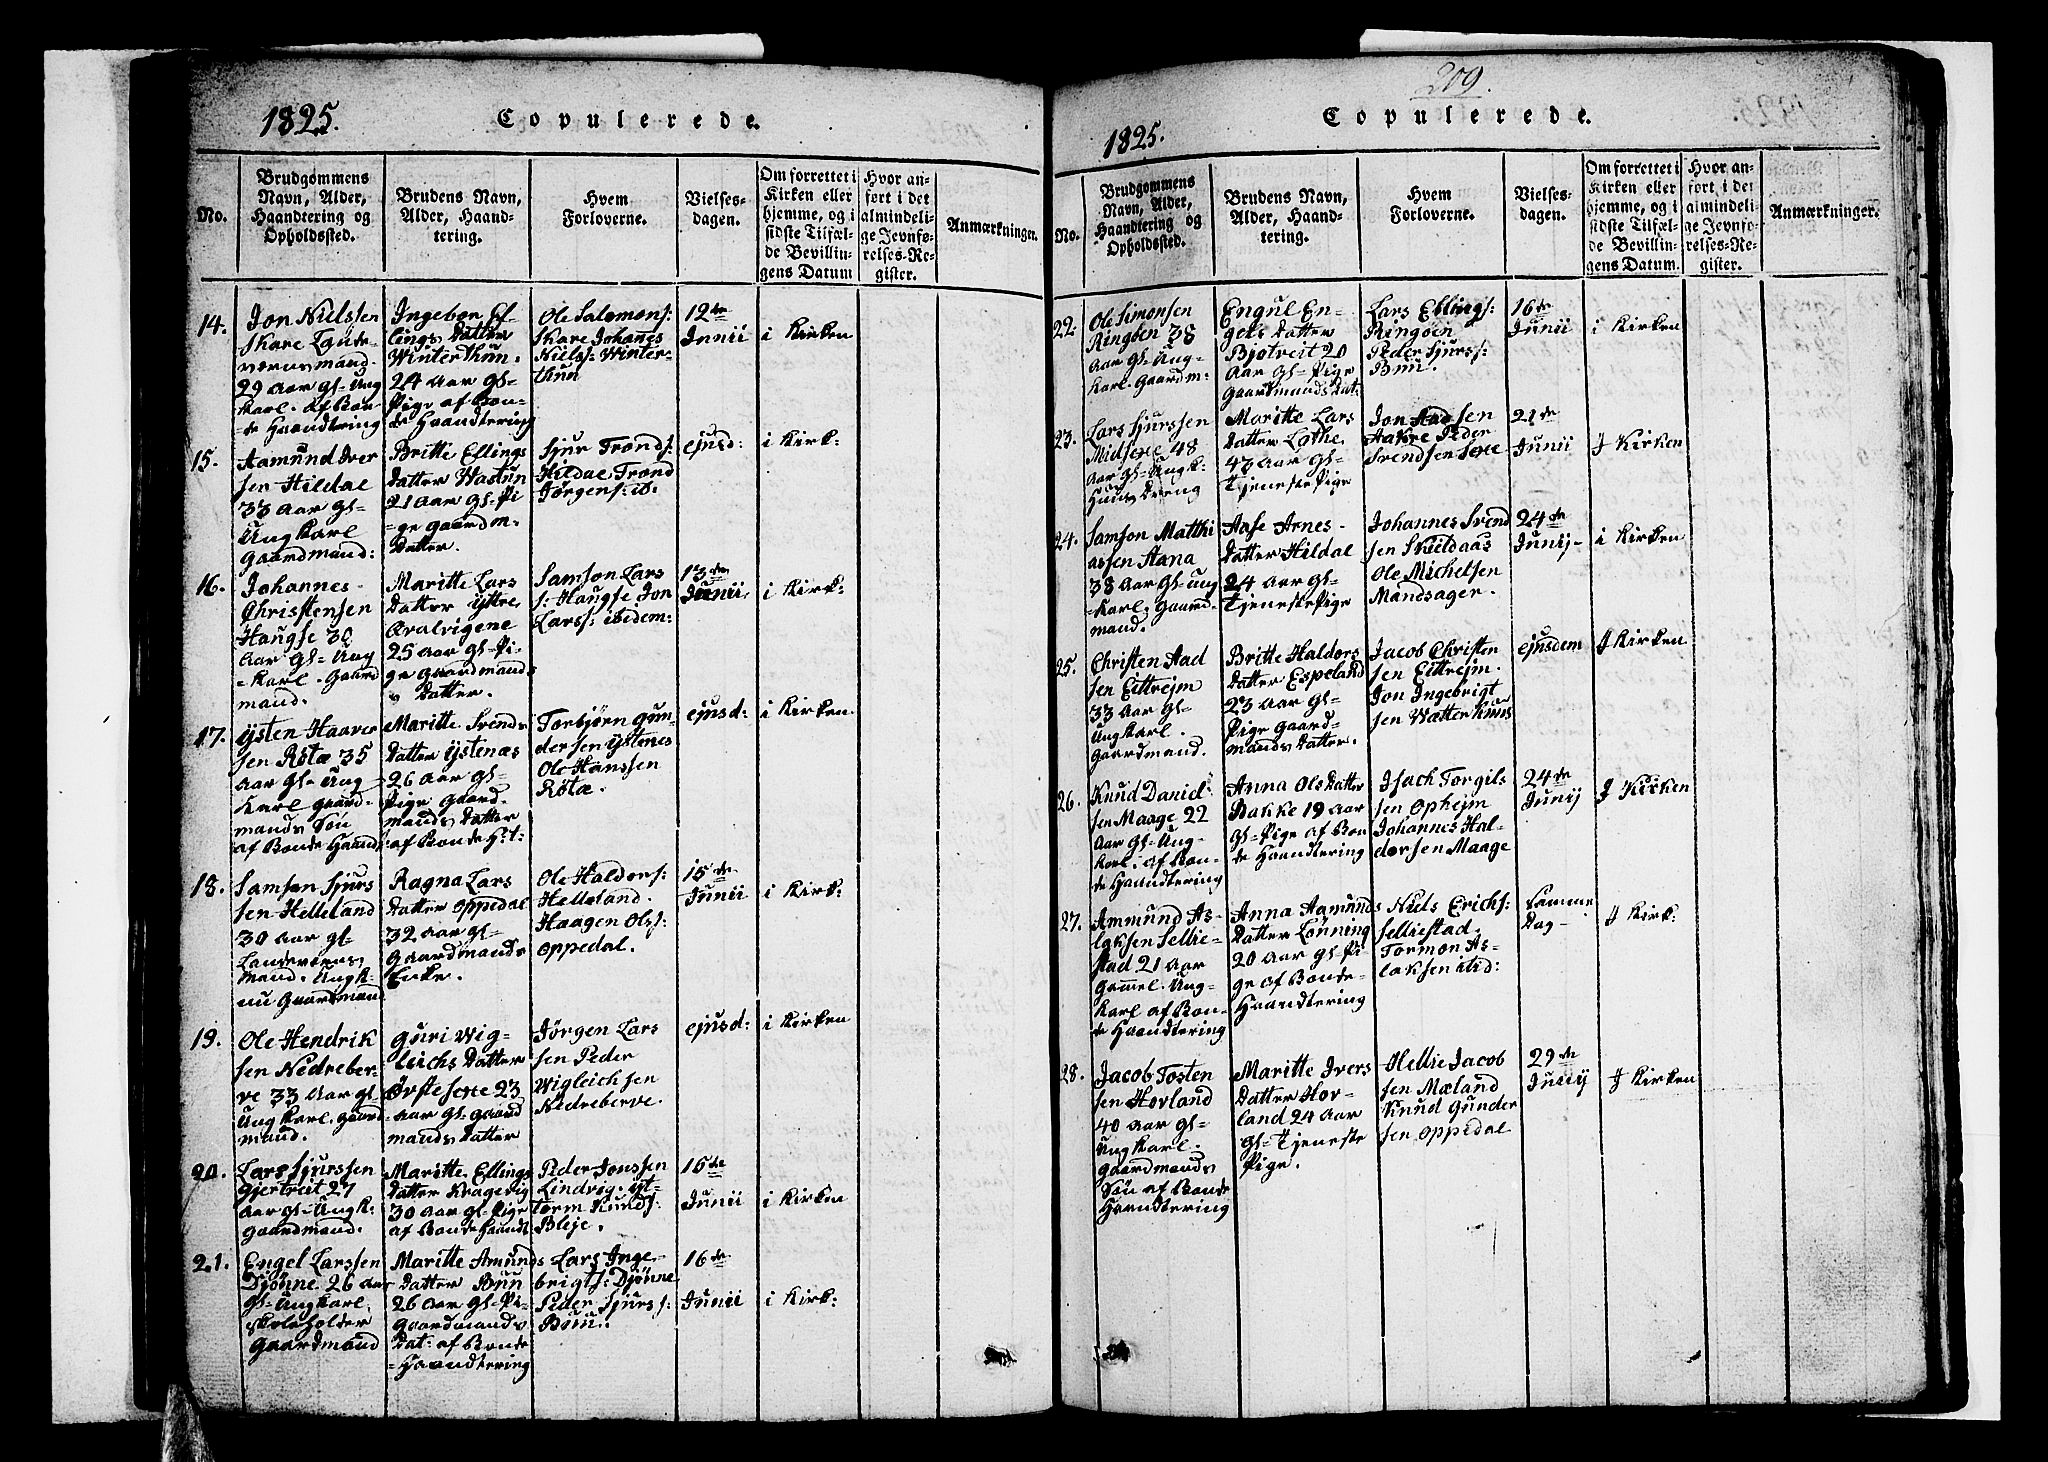 1825.
Copulerede.
No.
Brudgommens
Navn, Alder,
Haandtering og
Opholdssted.
Brudens Navn,
Alder, Haand-
tering.
Hvem
Forloverne.
Vielses-
dagen.
Om forrettet i
Kirken eller
hjemme, og i
sidste Tilfæl-
de Bevillin-
gens Datum
Hvor an-
ført i det
almindeli-
ge Jevnfø-
relses-Re-
gister.
Anmærkninger.
14.
Jon Nielssen
Skare Lande-
verns mand.
29 Aar Gl- Ung
Karl. af Bon-
de Haandtering
Ingebor El-
lings Datter
Winterthun.
24 Aar Gl-
Pige af Bon-
de Haandtering
Ole Salomons:
Skare Johanes
Niels: Winter-
thun
12te
Junii
i Kirken
15.
Aamund Iver
sen Hildal
33 Aar Gl-
Ung Karl
Gaardmand:
Britte Ellings
Datter Wastun
21 Aar Gl- Pi
-ge Gaardm-
Datter.
Sjur Trond s:
Hildal Trond
Jørgens: ib:
ejusd:
i Kirk:
16.
Johannes
Christensen
Haugse 30
Aar Gl- Ung
-Karl. Gaard
mand.
Maritte Lars
Datter Yttre
25 Aar Gl- Pi-
ge Gaardmands
Datter.
Samson Lars
s: Haugse Jon
Larss: ibidem:
13de
Junii,
i Kirk:
17.
Ysten Haaver
sen Røtæ 35
Aar Gl- Ung
Karl Gaard-
mands Søn
af Bonde Haand
Maritte Svends
Datter Ystenæs
26 Aar Gl-
Pige Gaard.
mands Datter
af Bonde H:t:
Torbjørn Gun-
dersen Ystenes
Ole Hanssen
Røtæ.
ejusd:
i Kirken.
18.
Samson Sjurs
sen Helleland
30 Aar Gl-
Landeverns
mand. Ungk-
nu Gaardmand
Ragna Lars
Datter Oppedal
32 Aar Gl-
Gaardmands
Enke.
Ole Haldors:
Helleland.
Haagen Ols:
Oppedal.
15de
Junii
i Kirk:
19.
Ole Hendrik
sen Nedreber-
ve 33 Aar Gl
Ung Karl. Gaard
mand.
Guri Wig-
leichs Datter
23
Aar Gl- Gaard
mands Datter
Jørgen Lars
sen Peder
Wigleichsen
Nedreberve.
ejusd:
i Kirken
20.
Lars Sjurssen
Gjertveit 27
Aar Gl- Ungk:
Gaardmand.
Maritte Ellings
Datter Kragevig
30 Aar Gl- Pige
af Bonde Haandt
Peder Jonssen
Lindvig.
Blije.
16de
Junii
i Kirken
21.
Engel Larssen
Djønne 26 Aar
Gl- Ung Karl.
Skoleholder
Gaardmand
Maritte Amunds
Datter Buu
26 Aar Gl- Pi-
Gaardmands
Dat: af Bonde
-Haandtering
Lars Inge-
brigts: Djønne
Peder Sjurss:
Buu.
16de
Junii
i Kirk:
209.
1825.
Copulerede.
No.
Brudgommens
Navn, Alder,
Haandtering og
Opholdssted.
Brudens Navn,
Alder, Haand-
tering.
Hvem
Forloverne.
Vielses-
dagen.
Om forrettet i
Kirken eller
hjemme, og i
sidste Tilfæl-
de Bevillin-
gens Datum.
Hvor an-
ført i det
almindeli-
ge Jevnfø-
relses-Re-
gister.
Anmærkninger.
22.
Ole Simonsen
Ringøen 38
Aar Gl- Ung-
Karl. Gaardm-
Engul En-
gels Datter
Bjotveit 20
Aar Gl- Pige
Gaardmands Dat:
Lars Ellings:
Ringøen
Peder Sjurss:
Buu.
16de
Junii
i Kirken
23.
Lars Sjurssen
Midsexe 48
Aar Gl- Ungk:
Huus Dreng
Maritte Lars
Datter Lothe
43 Aar Gl-
Tjeneste Pige
Jon Aadsen
Aakre Peder
Svendsen Sexe
21de
Junii
J Kirken
24.
Samson Matthi
assen Aana
38 Aar Gl- Ung
-Karl. Gaard
mand.
Aase Arnes-
Datter Hildal
24 Aar Gl-
Tjeneste Pige
Johannes Svend
sen Skieldaas
Ole Michelsen
Mandsager.
24de
Junij-
i Kirken
25.
Christen Aad
sen Eittrejm
33 Aar Gl-
Ung Karl.
Gaardmand.
Britte Haldors
Datter Espeland
23 Aar Gl-
Pige Gaard-
mands Datter.
Jacob Christen
sen Eittrejm.
Jon Ingebrigt
sen
ejusdem
J Kirken
26.
Knud Daniel:
sen Maage 22
Aar Gl- Ung-
Karl. af Bon-
de Haandtering
Anna Ols Datter
Bakke 19 Aar
Gl- Pige af Bon
de Haandtering
Isach Torgils
sen Ophejm
Johannes Hal-
dorsen Maage
24de
Junij
J Kirken
27.
Ammund As-
laksen Sellie-
stad 21 Aar
Gammel. Ung-
Karl af Bon-
de Haandtering
Anna Aamunds
Datter Lønning
20 Aar Gl- Pi
ge af Bonde-
Haandtering
Niels Erichs:
Selliestad.
Tormon As-
laksen ibid:
Samme
Dag-
J Kirk:
28.
Jacob Tosten
sen Hovland
40 Aar Gl-
Ung Karl.
Gaardmands
Søn af Bonde
Haandtering
Maritte Ivers
Datter Hov-
land 24 Aar
Gl- Tjeneste
Pige.
Hellie Jacob
sen Mæland
Knud Gunder
sen Oppedal
29de
Junij
J Kirken